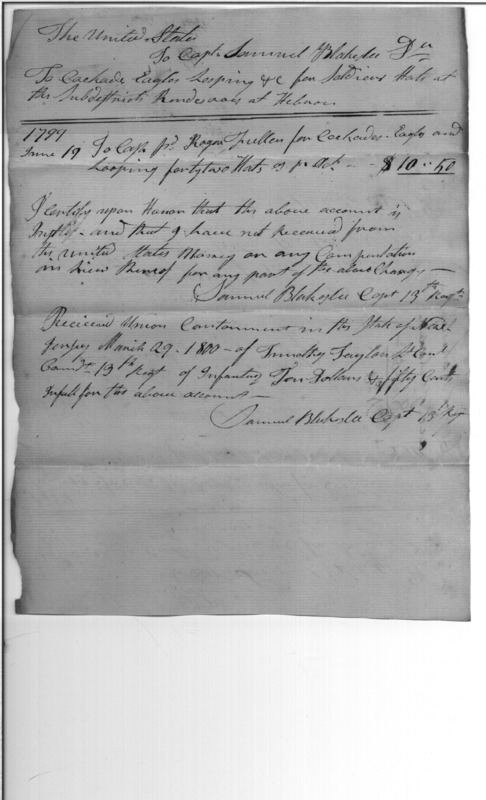 The United States
To Capt. Samuel Blakeslee Dr
To Cockade Eagles Looping &c for Soldiers Hats at
the Subdistrict Rendezvous at Hebron
1799
June 19 To Cash pd. Roger Fuller for Cockades - Eagles and
Looping forty two Hats as pr Rct. - - $10..50
I certify upon Honor that the above account is
Just - and that I have not Received from
the united States Money or any Compensation
in view thereof for any part of the above Charge -
Samuel Blakeslee Capt 13th Regt.
Received Union Cantonment in the State of New
Jersey March 29 - 1800 - of Timothy Taylor Lt Coll
Comdt. 13th Regt of Infantry Ten Dollars & fifty Cents
in full for the above account -
Samuel Blakeslee Capt 13 Reg